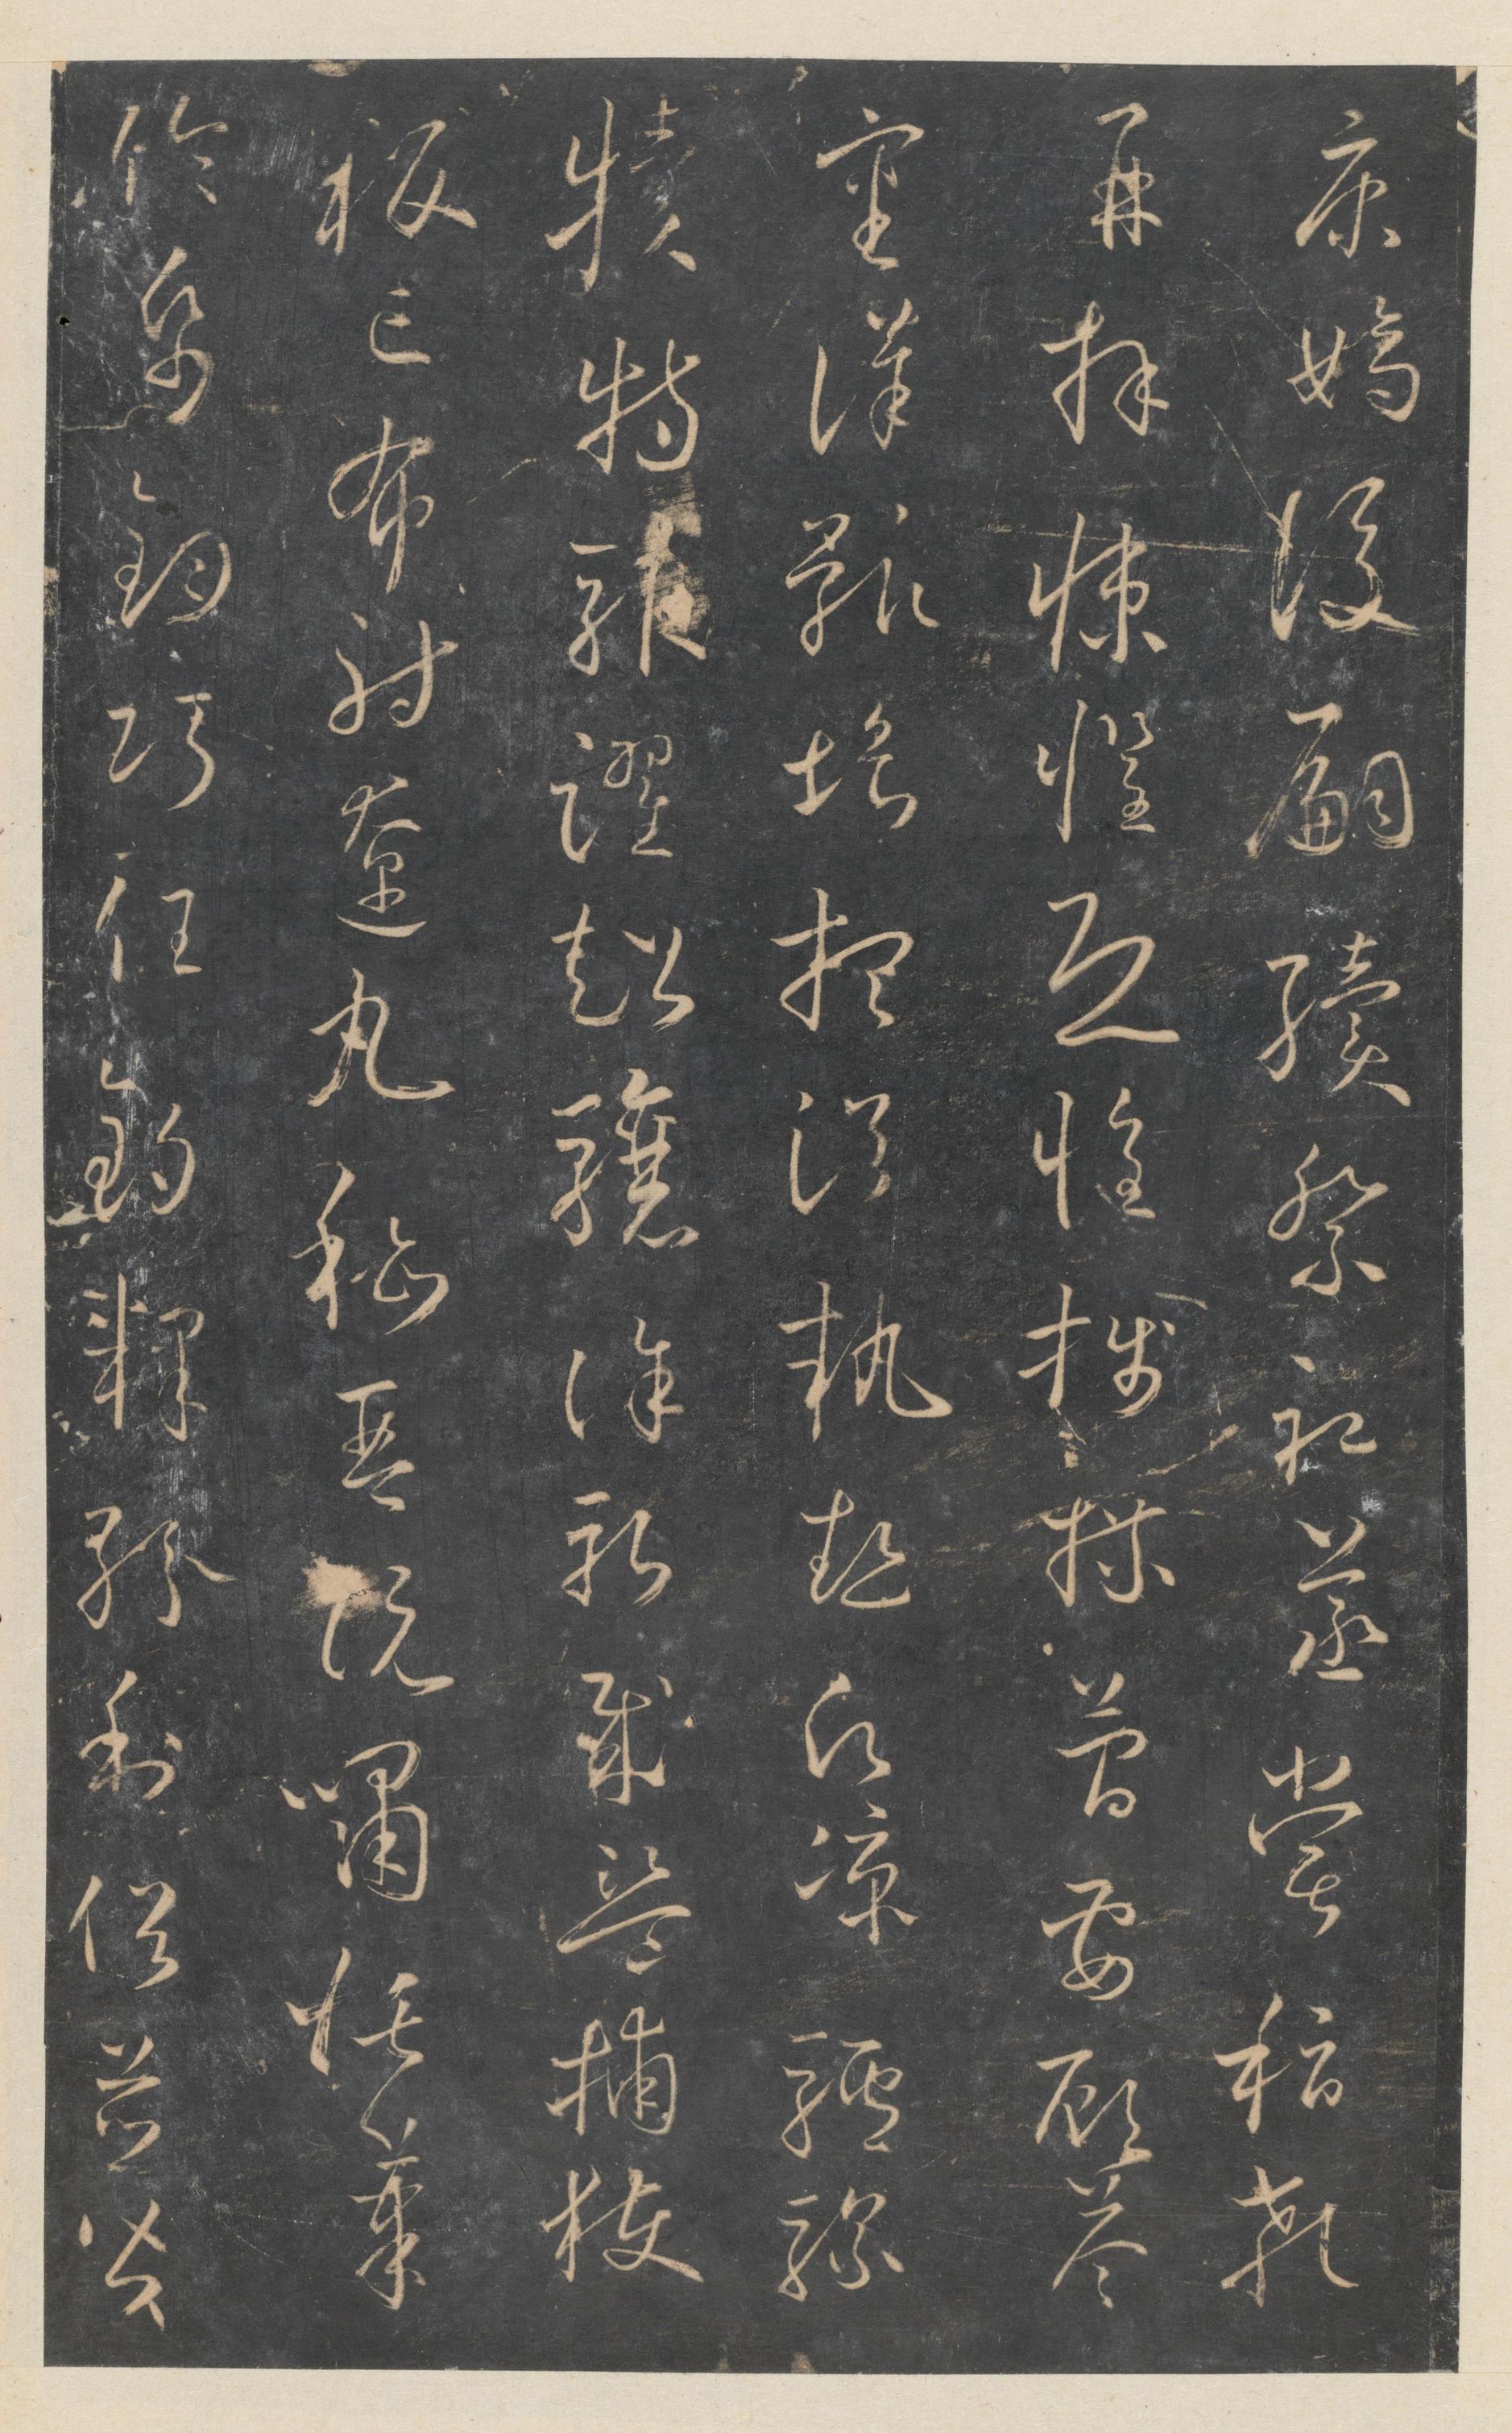 康嫡後嗣續祭祀蒸嘗稽顙
再拜悚懼恐惶牋牒簡要顧答
審詳骸垢想浴執熱願涼驢騾
犢特駭躍超驤誅斬賊盜捕獲
叛亡布射遼丸嵇琴阮嘯恬筆
倫紙鈞巧任釣釋紛利俗並皆